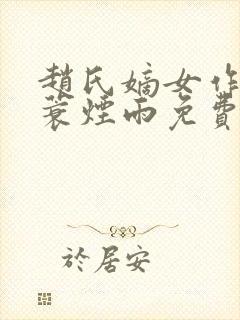 趙氏嫡女作
蓑煙雨免費
於居安